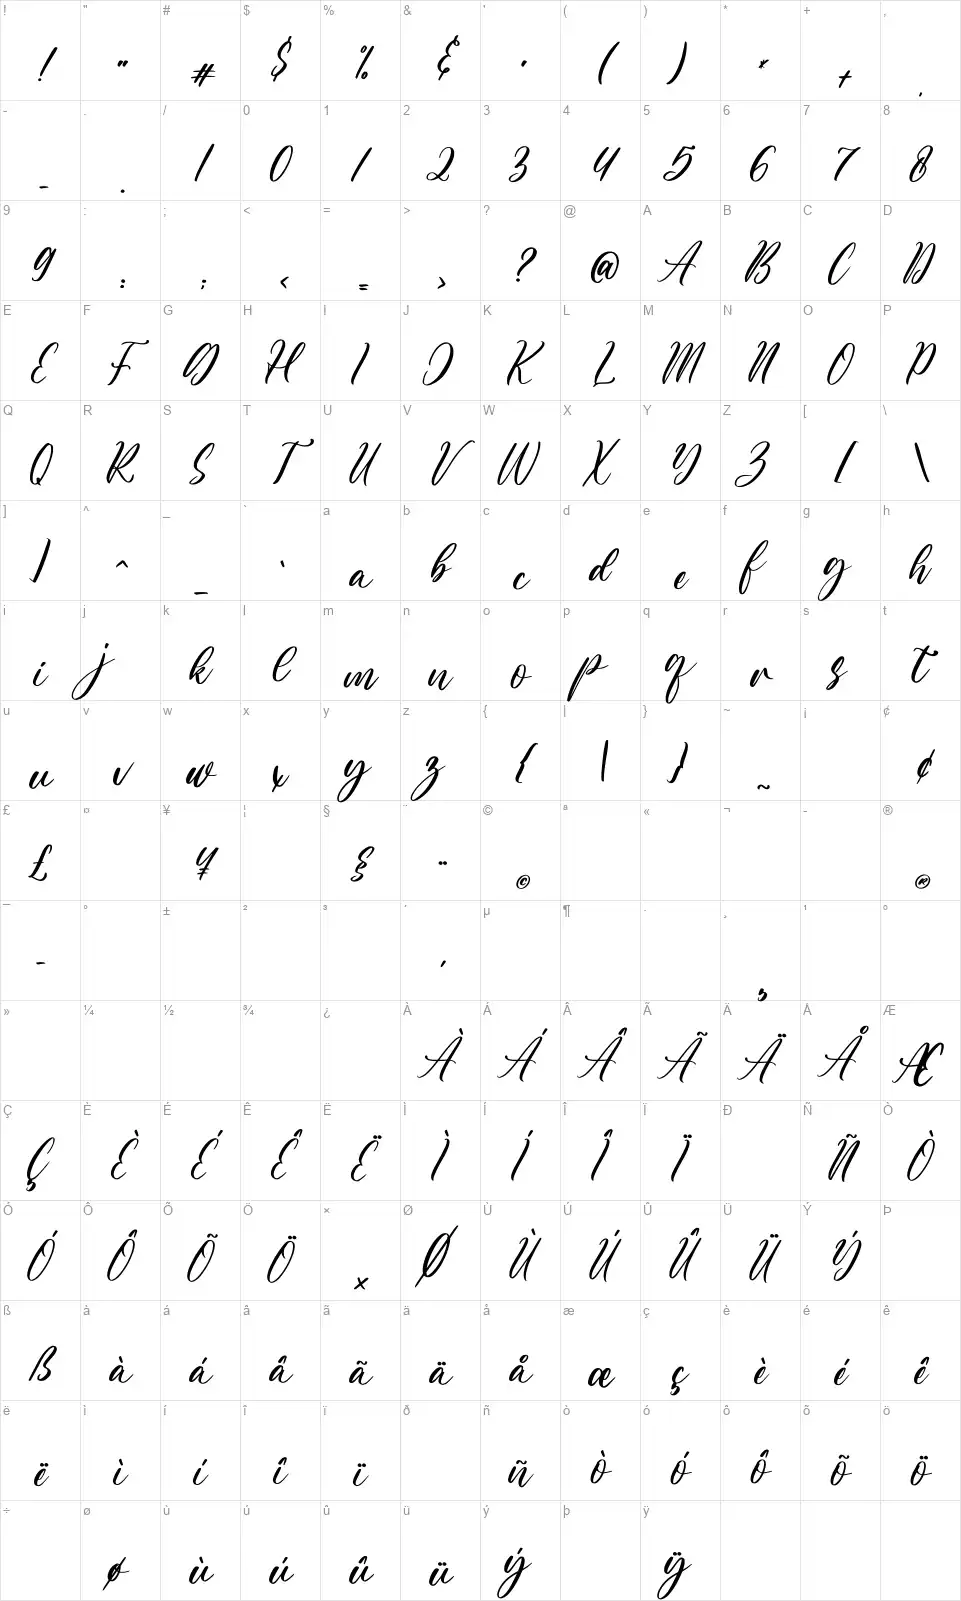 ! " # $ % & ' ( ) * + ,
! " # $ % & ' ( ) * + ,
- . / 0 1 2 3 4 5 6 7 8
- . / 0 1 2 3 4 5 6 7 8
9 : ; < = > ? @ A B C D
9 : ; < = > ? @ A B C D
E F G H I J K L M N O P
E F G H I J K L M N O P
Q R S T U V W X Y Z [ \
Q R S T U V W X Y Z [ \
] ^ _ ` a b c d e f g h
] ^ _ ` a b c d e f g h
i j k l m n o p q r s t
i j k l m n o p q r s t
u v w x y z { | } ~ ¡ ¢
u v w x y z { | } ~ ¢
£ ¤ ¥ ¦ § ¨ © ª « ¬ - ®
£ ¥ § ¨ © ®
¯ ° ± ² ³ ´ µ ¶ · ¸ ¹ º
¯ ´ ¸
» ¼ ½ ¾ ¿ À Á Â Ã Ä Å Æ
À Á Â Ã Ä Å Æ
Ç È É Ê Ë Ì Í Î Ï Ð Ñ Ò
Ç È É Ê Ë Ì Í Î Ï Ñ Ò
Ó Ô Õ Ö × Ø Ù Ú Û Ü Ý Þ
Ó Ô Õ Ö × Ø Ù Ú Û Ü Ý
ß à á â ã ä å æ ç è é ê
ß à á â ã ä å æ ç è é ê
ë ì í î ï ð ñ ò ó ô õ ö
ë ì í î ï ñ ò ó ô õ ö
÷ ø ù ú û ü ý þ ÿ
ø ù ú û ü ý ÿ